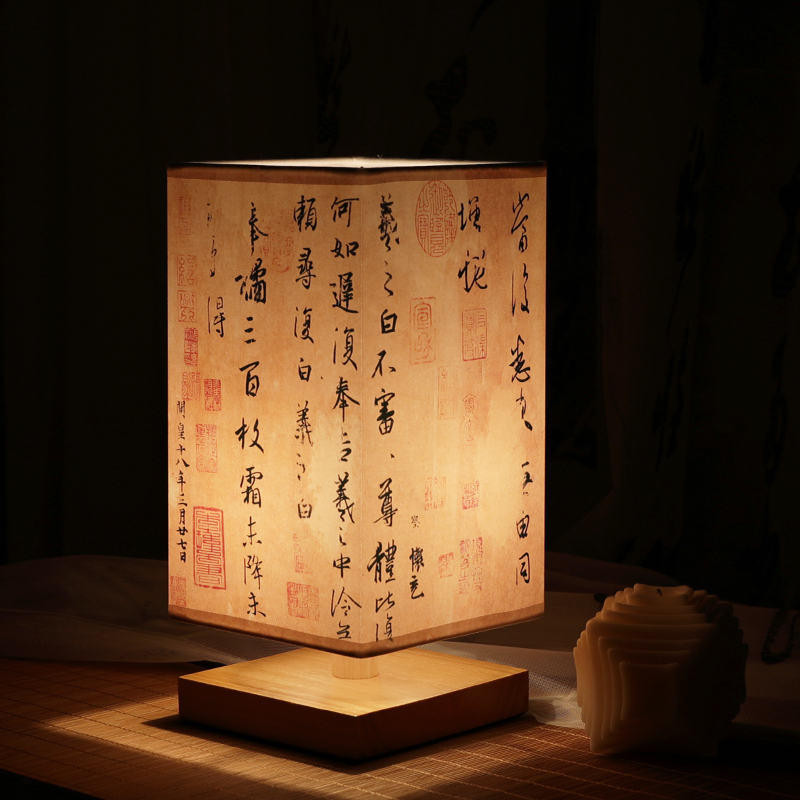 當復悉來無由同
增慨
察 懷充
羲之白不審、尊體比復
何如遲復奉告羲之中冷無
賴尋復白羲之白
奉橘三百枚霜未降未
可多得
開皇十八年三月廿七日